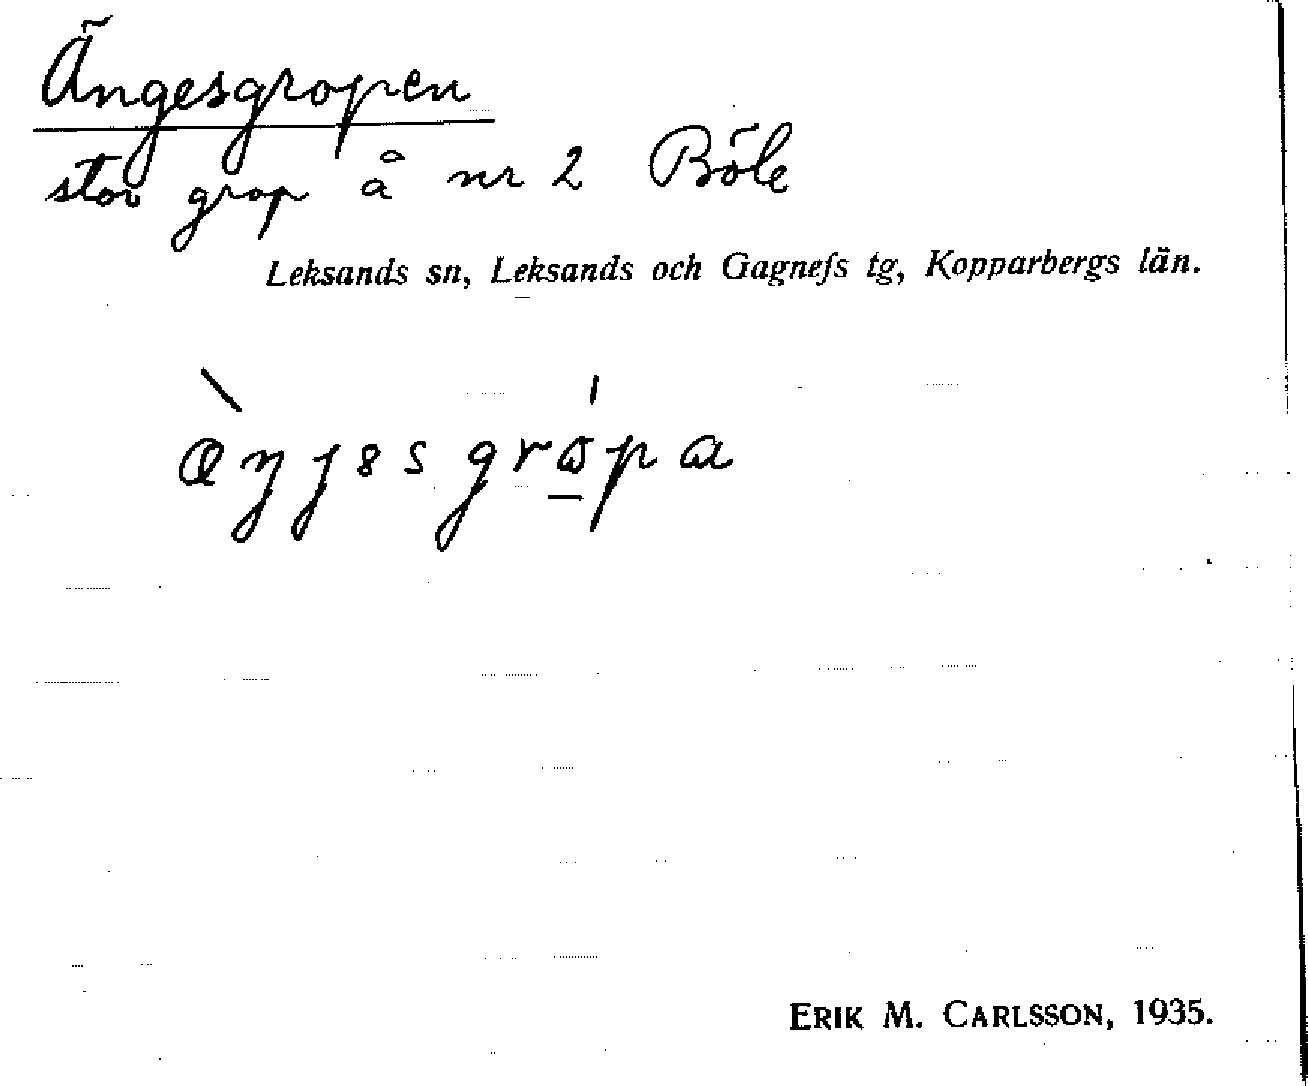 Ängesgropen
stor grop å nr 2 Böle
Leksands sn, Leksands och Gagnefs tg, Kopparbergs län.
ERIK M. CARLSSON, 1935.